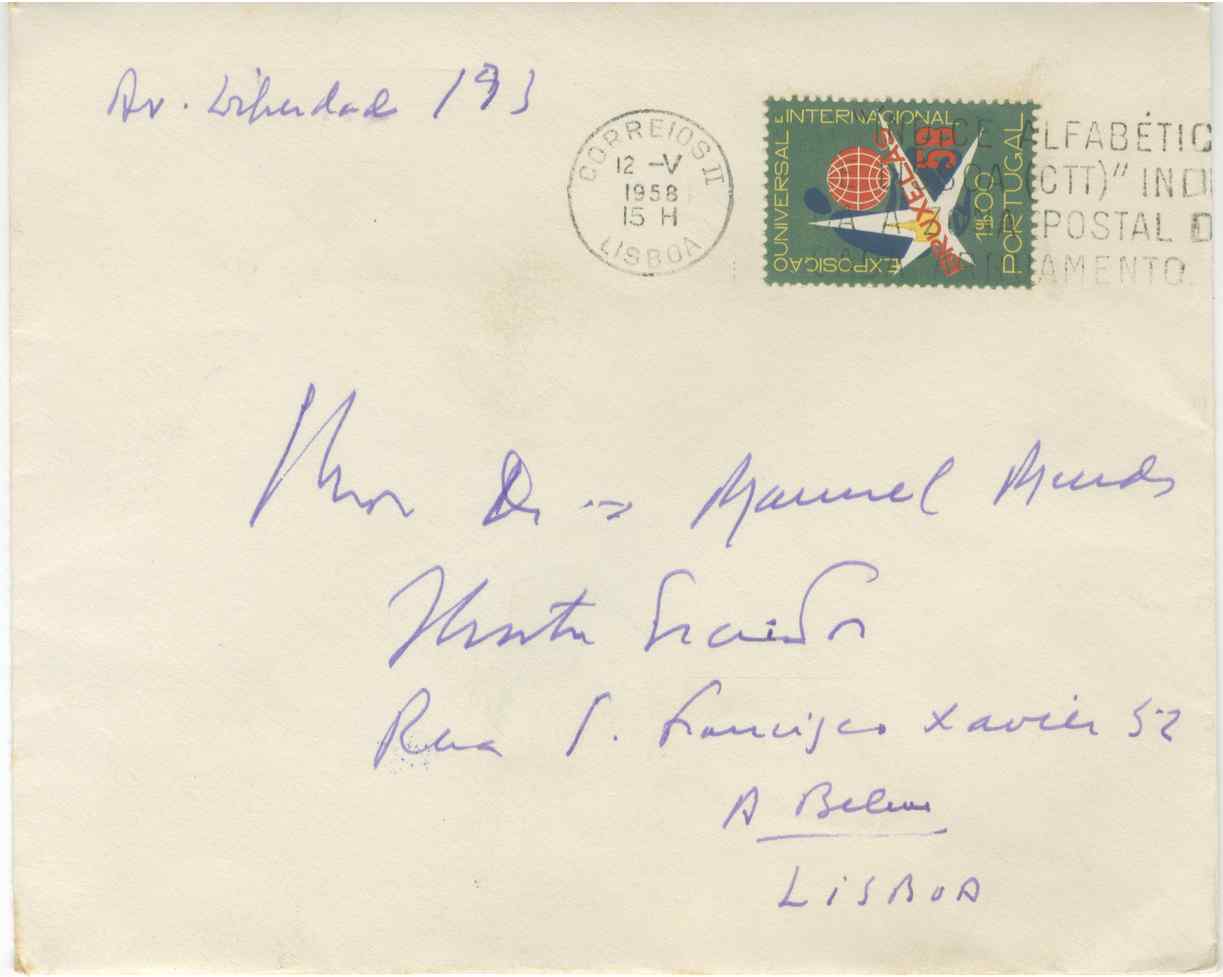 Av. Liberdade 193
CORREIOS II
12 -V
1958
15 H
LISBOA
EXPOSIÇÃO UNIVERSAL E INTERNACIONAL
BRUXELAS
58
1$00
PORTUGAL
ALFABÉTIC
(CTT)" INDI
A ZONA POSTAL D
AMENTO.
Dr. Manuel Mendes
Ilustre Escritor
Rua S. Francisco Xavier 52
A Belem
LISBOA